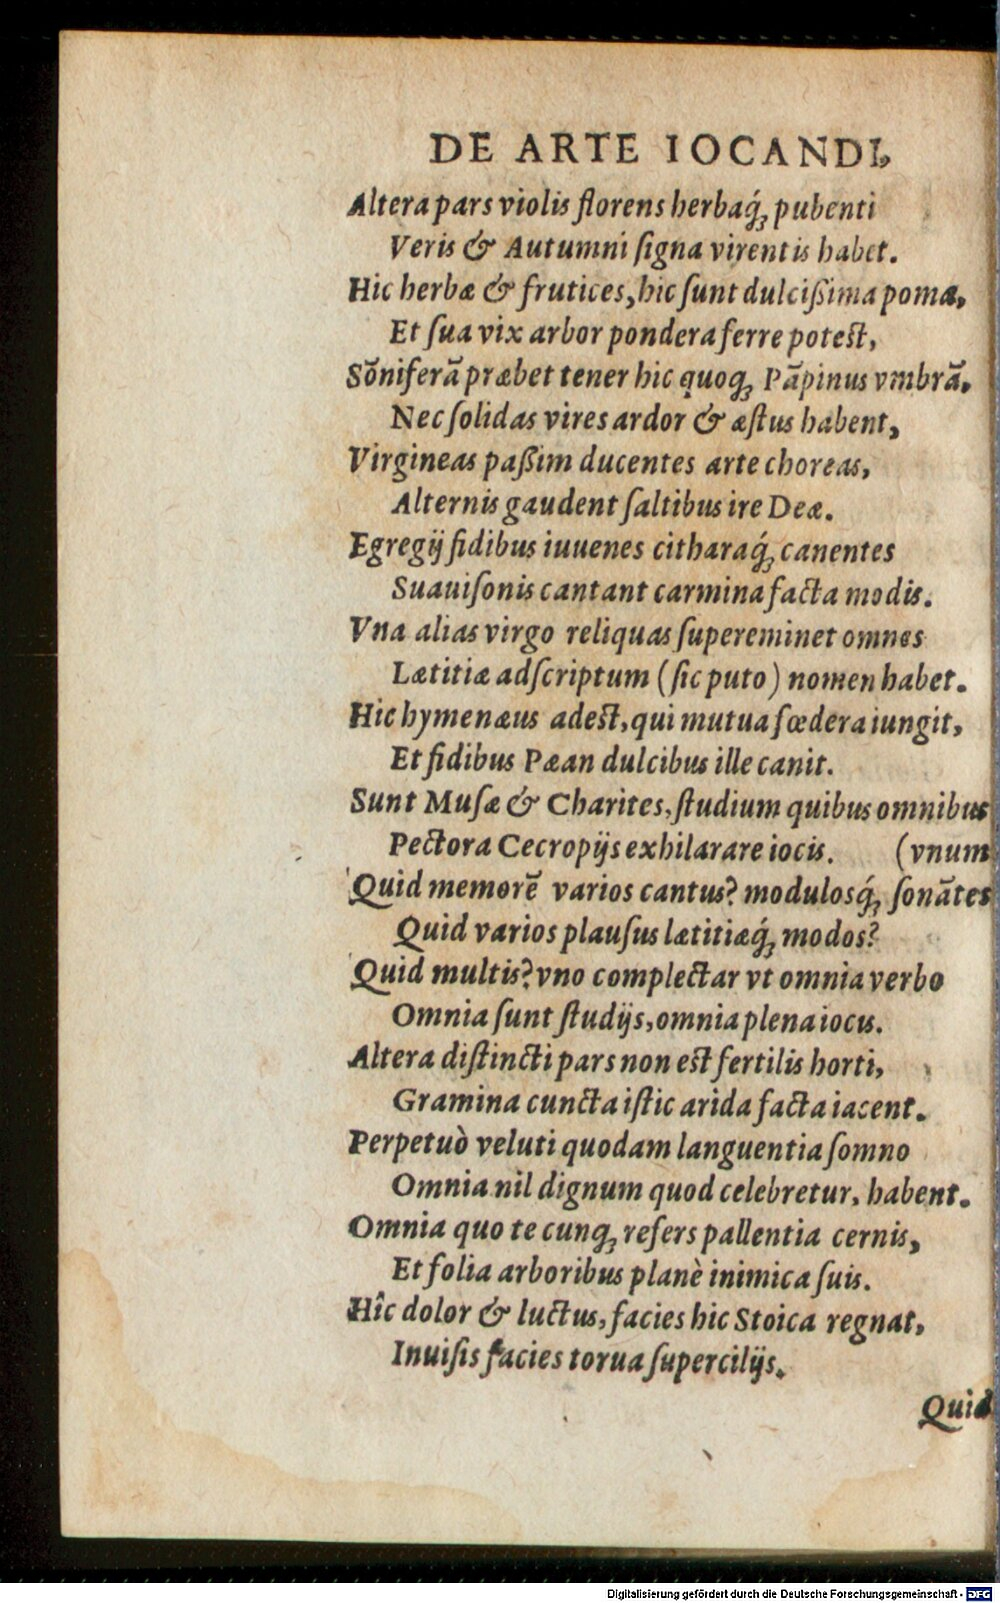 DE ARTE IOCANDI,
Altera pars violis florens herbaq́; pubenti
Veris & Autumni ſigna virentis habet.
Hic herbæ & frutices, hic ſunt dulcißima poma,
Et ſua vix arbor pondera ferre poteſt,
Sõniferã præbet tener hic quoq; Pãpinus vmbrã,
Nec ſolidas vires ardor & æſtus habent,
Virgineas paßim ducentes arte choreas,
Alternis gaudent ſaltibus ire Deæ.
Egregij fidibus iuuenes citharaq́; canentes
Suauiſonis cantant carmina facta modis.
Vna alias virgo reliquas ſupereminet omnes
Lætitiæ adſcriptum (ſic puto) nomen habet.
Hic hymenæus adeſt, qui mutua fœdera iungit,
Et fidibus Pæan dulcibus ille canit.
Sunt Muſæ & Charites, ſtudium quibus omnibus
Pectora Cecropijs exhilarare iocis. (vnum
Quid memorẽ varios cantus? modulosq́; ſonãtes
Quid varios plauſus lætitiæq́; modos?
Quid multis? vno complectar vt omnia verbo
Omnia ſunt ſtudijs, omnia plena iocis.
Altera diſtincti pars non eſt fertilis horti,
Gramina cuncta iſtic arida facta iacent.
Perpetuò veluti quodam languentia ſomno
Omnia nil dignum quod celebretur, habent.
Omnia quo te cunq; refers pallentia cernis,
Et folia arboribus planè inimica ſuis.
Hîc dolor & luctus, facies hic Stoica regnat,
Inuiſis facies torua ſupercilijs.
Quid
Digitalisierung gefördert durch die Deutsche Forschungsgemeinschaft - DFG